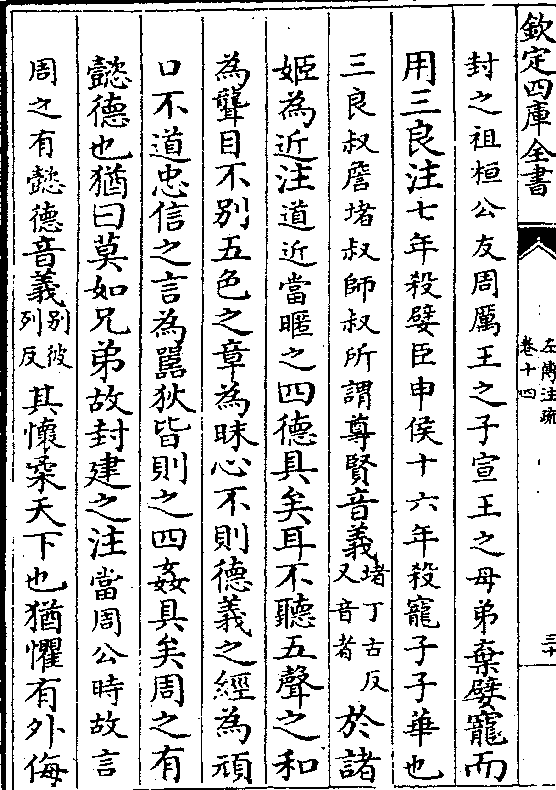 欽定四庫全書
左傳注疏
卷十四
三十
封之祖桓公友周厲王之子宣王之母弟棄嬖寵而
用三良注七年殺嬖臣申侯十六年殺寵子子華也
三良叔詹堵叔師叔所謂尊賢音義堵丁古反又音者於諸
姬為近注道近當暱之四德具矣耳不聽五聲之和
為聾目不別五色之章為昧心不則德義之經為頑
口不道忠信之言為嚚狄皆則之四姦具矣周之有
懿德也猶曰莫如兄弟故封建之注當周公時故言
周之有懿德音義別彼列反其懷柔天下也猶懼有外侮